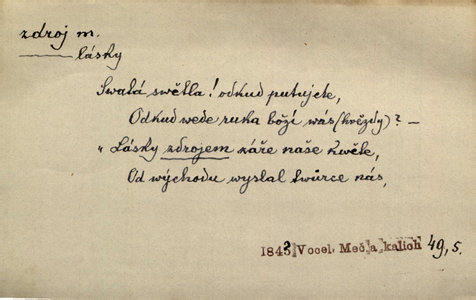 zdroj m.
—— lásky
Swatá swětla! odkud putujete,
Odkud wede ruka boží wás (hvězdy)? —
„Lásky zdrojem záře naše kwěte,
Od wýchodu wyslal twůrce nás,
1843 Vocel, Meč a kalich 49, 5.